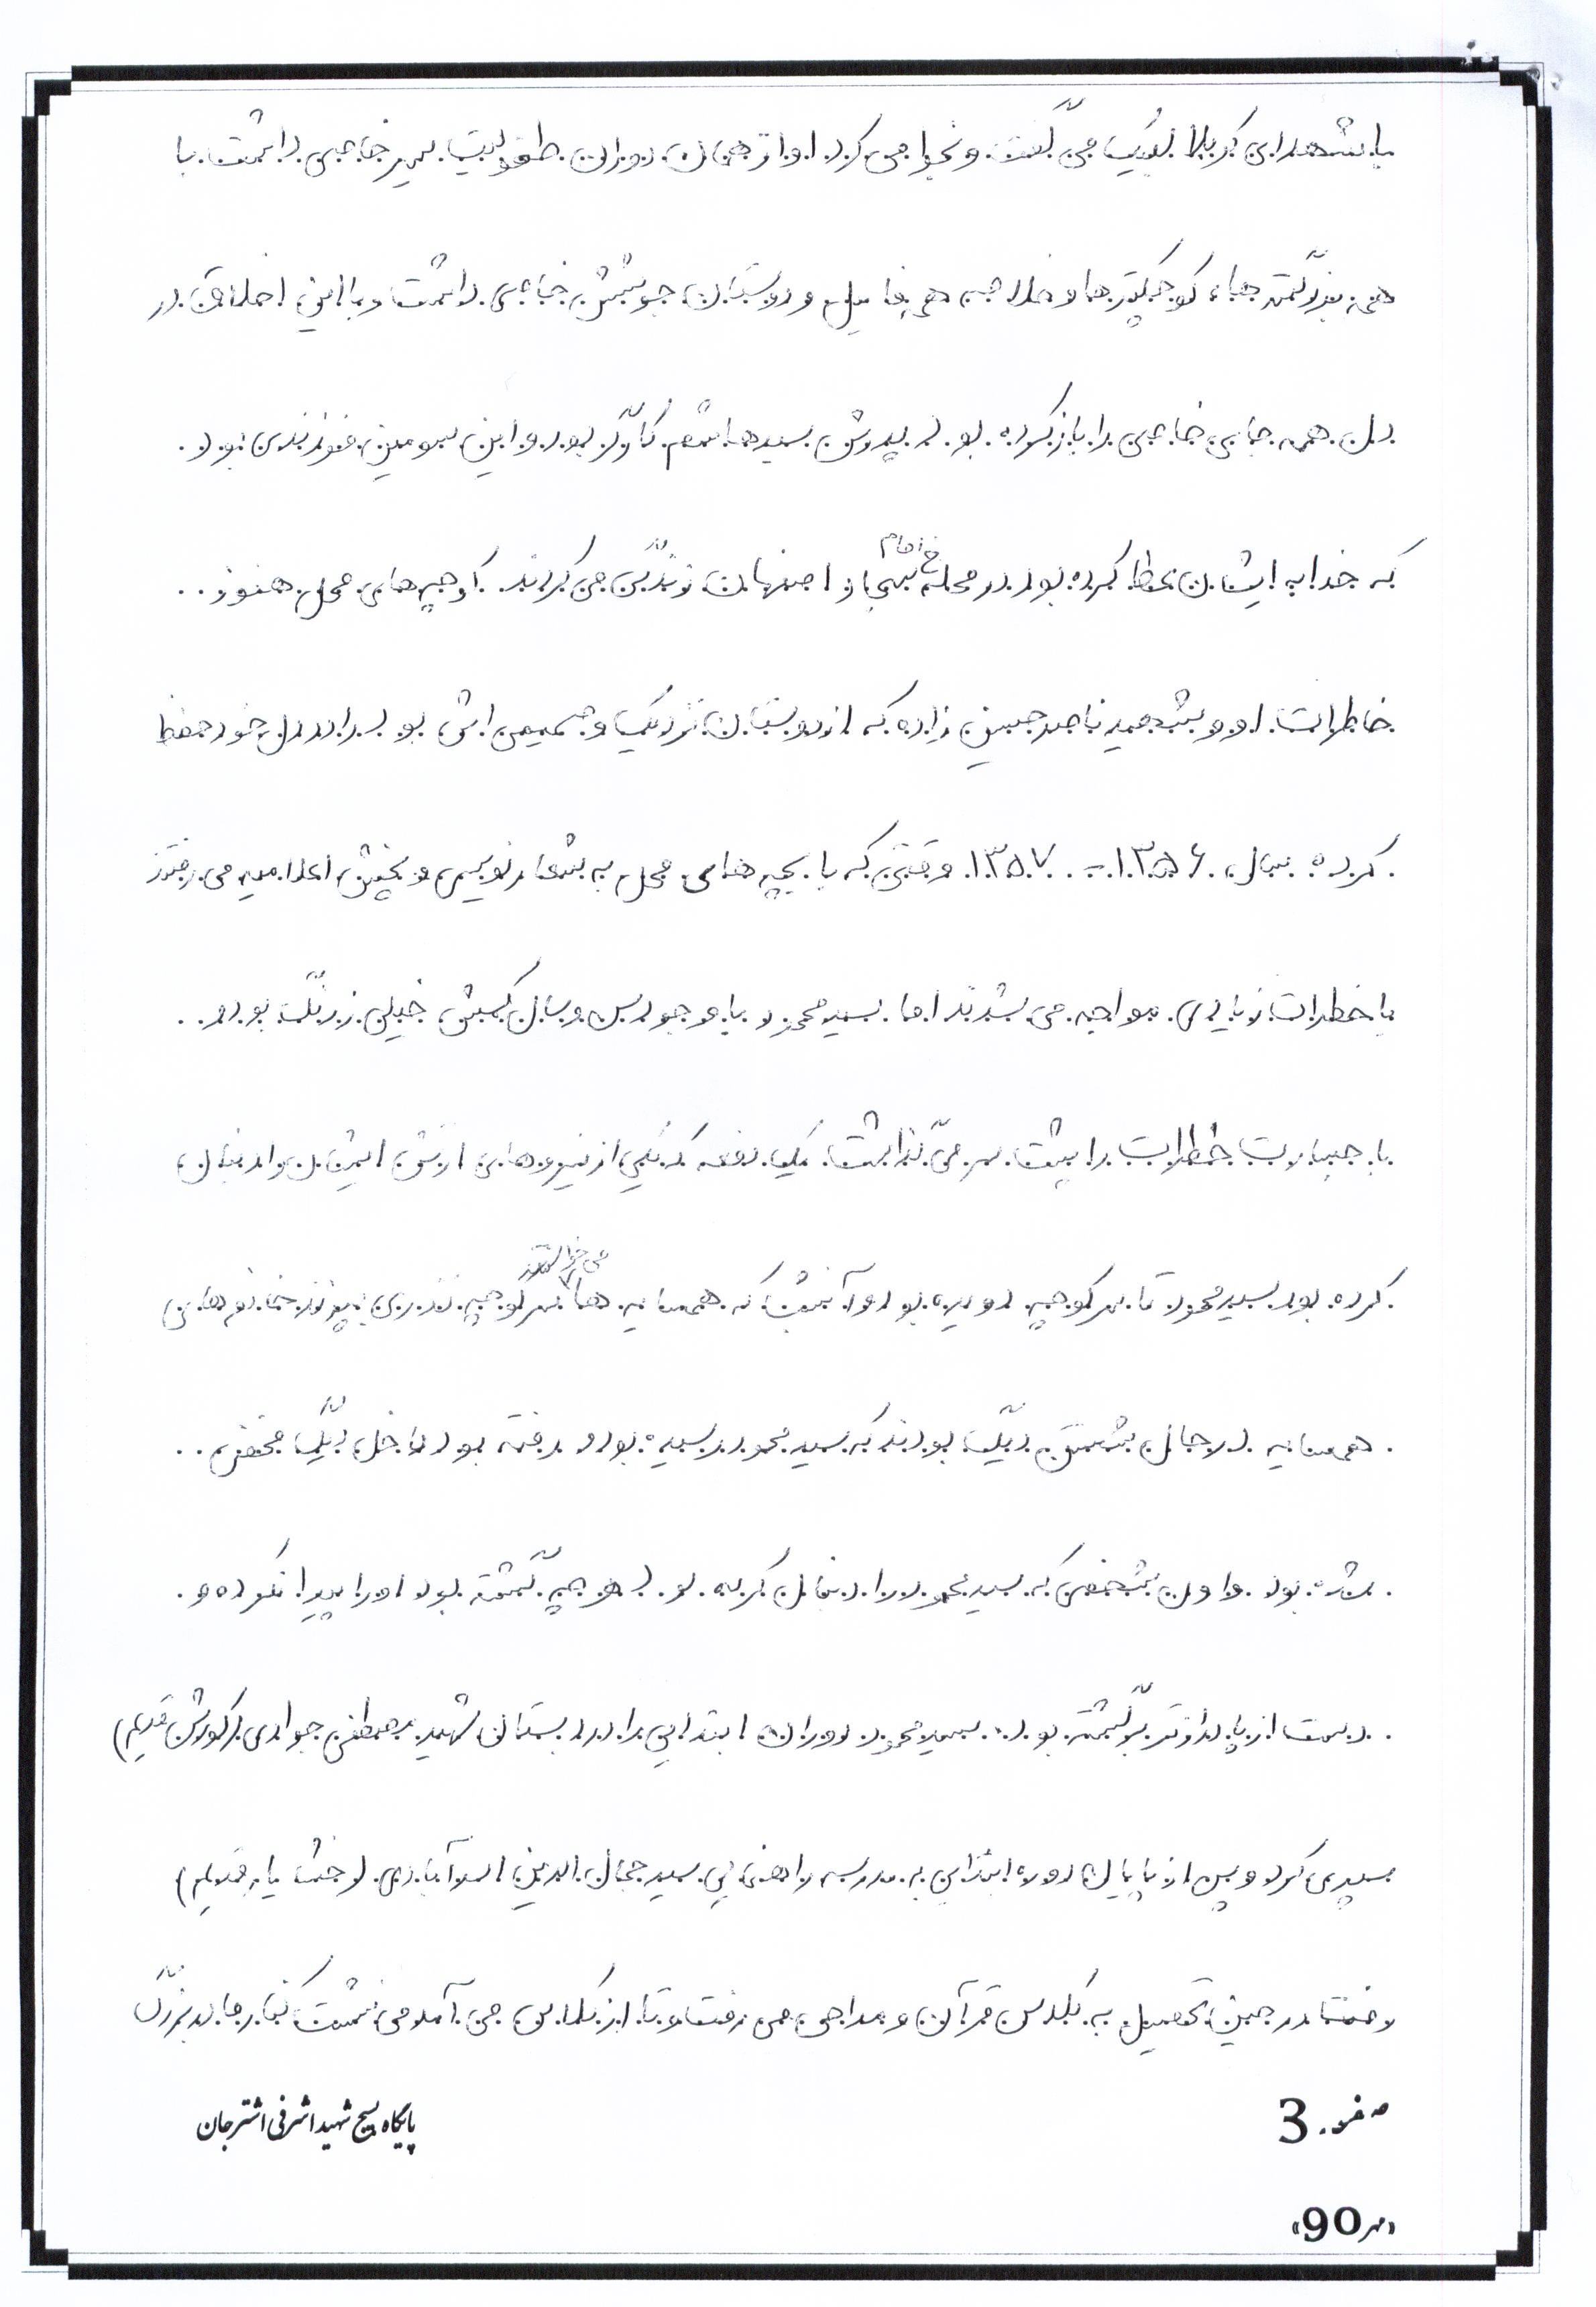 با شهدای کربلا لبیک می گفت و نجوا می کرد او از همان دوران طفولیت سیر خاصی داشت با
همه بزرگتر ها، کوچکترها و خلاصه همه فامیل و دوستان جوشش خاصی داشت و با این اخلاق در
دل همه جای خاصی را باز کرده بود پدرش سید هاشم کارگر بود و این سومین فرزندی بود
که خدا به ایشان عطا کرده بود در محله امام اصفهان زندگی می کردند. کوچه های محل هنوز
خاطرات او و شهید ناصر حسین زاده که از دوستان نزدیک و صمیمی اش بود را در دل خود حفظ
کرده سال ۱۳۵۶ - ۱۳۵۷ وقتی که با بچه های محل به شعار نویسی و پخش اعلامیه می رفتند
با خطرات زیادی مواجه می شدند اما سید محمود با وجود سن و سال کمش خیلی زرنگ بود و
با جسارت خطرات را پشت سر می گذاشت. یک دفعه که یکی از نیروهای ارتش ایشان را دنبال
کرده بود سید محمود تا سر کوچه دویده بود و آن شب که همسایه ها می خواستند سر کوچه نذری بپزند خانم های
همسایه در حال شستن دیگ بودند که سید محمود رسیده بود و رفته بود داخل دیگ مخفی
شده بود و اون شخصی که سید محمود را دنبال کرده بود هر چه گشته بود او را پیدا نکرده و
دست از پا درازتر برگشته بود. سید محمود دوران ابتدایی را در دبستان شهید مصطفی جوادی (کورش قدیم)
سپری کرد و پس از پایان دوره ابتدایی به مدرسه راهنمایی سید جمال الدین اسدآبادی (خشایار قدیم)
رفت در حین تحصیل به کلاس قرآن و مداحی می رفت و تا از کلاس می آمد می نشست کنار مادر بزرگ
صفحه 3
پایگاه بسیج شهید اشرفی اشترجان
«مهر90»